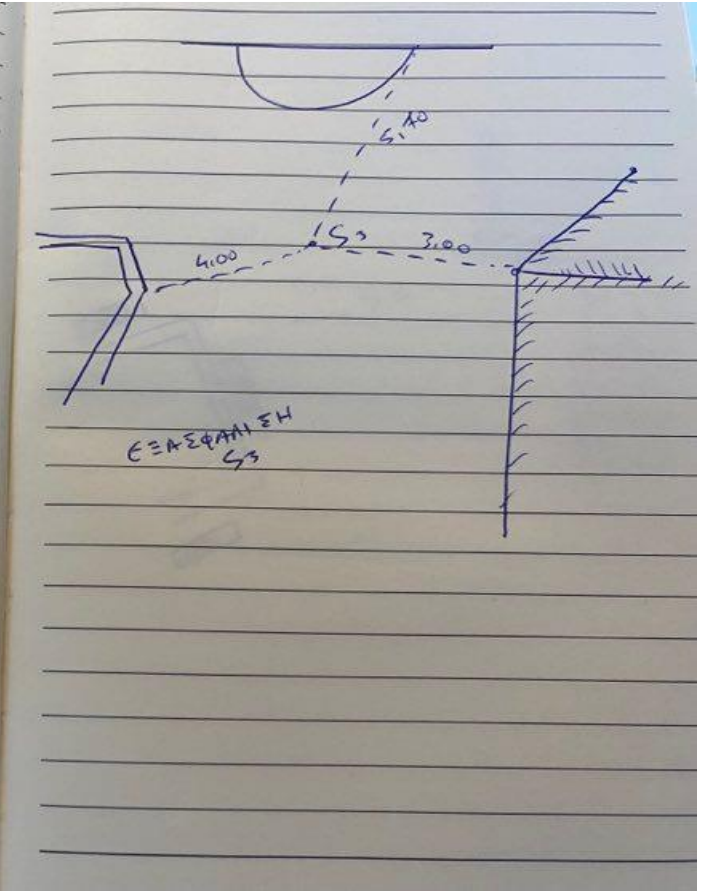 5,70
S3
4,00
3,00
ΕΞΑΣΦΑΛΙΣΗ
S3